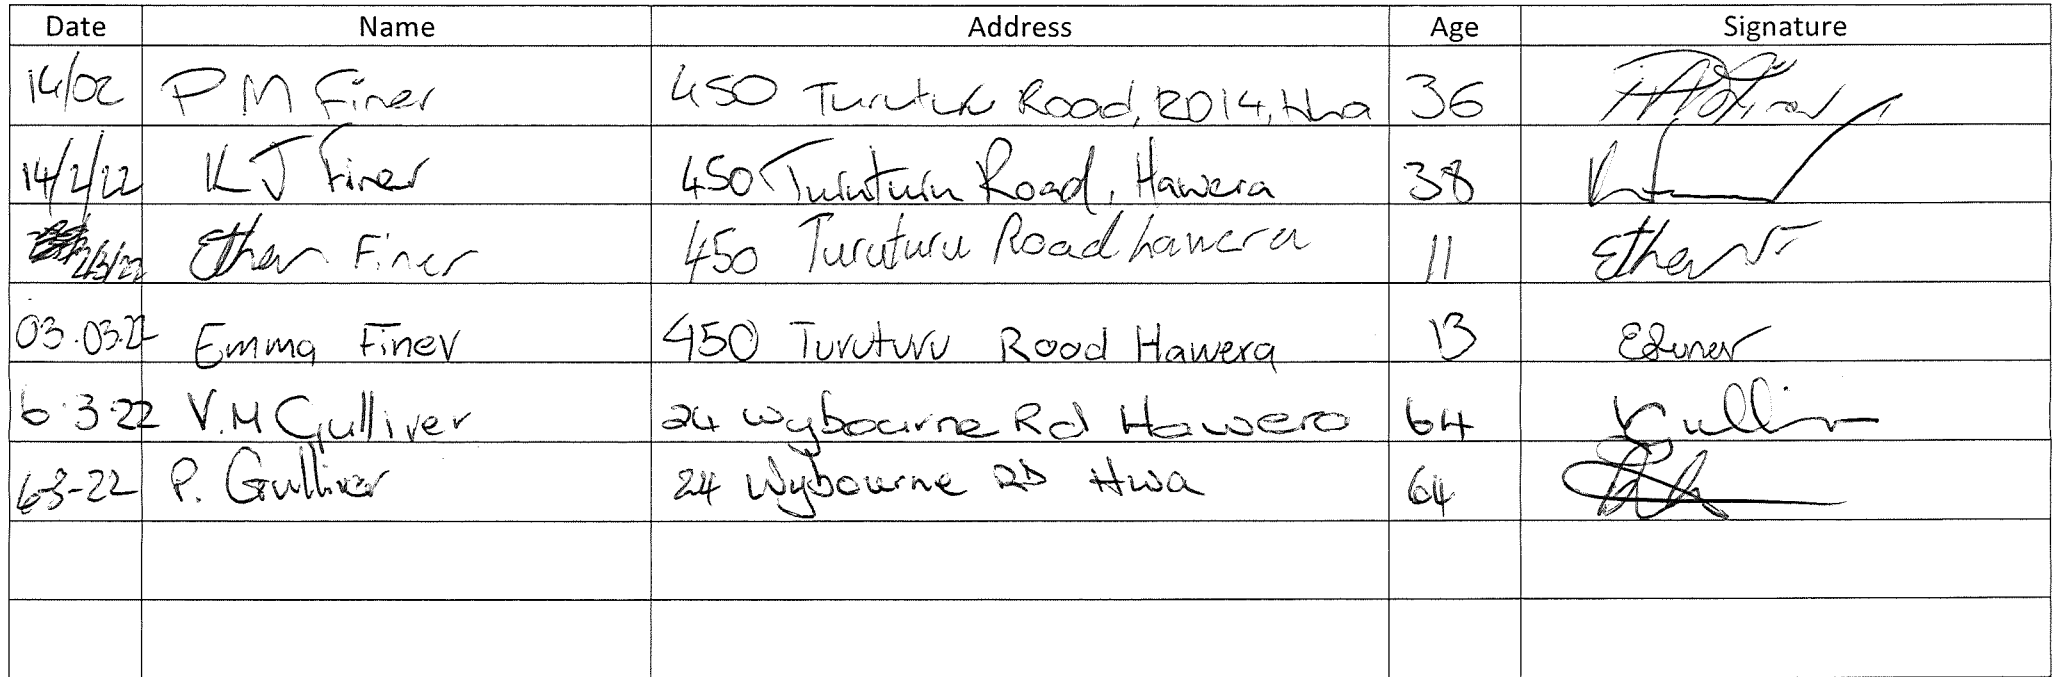 Date Name Address Age Signature
14/02 P M Finer 450 Turuturu Road, RD14, Hwa 36
14/2/22 K J Finer 450 Turuturu Road, Hawera 38
Ethan Finer 450 Turuturu Road hawera 11 Ethan
03.03.22 Emma Finer 450 Turuturu Road Hawera 13 EFiner
6.3.22 V.M Gulliver 24 Wybourne Rd Hawera 64
6-3-22 P. Gulliver 24 Wybourne RD Hwa 64